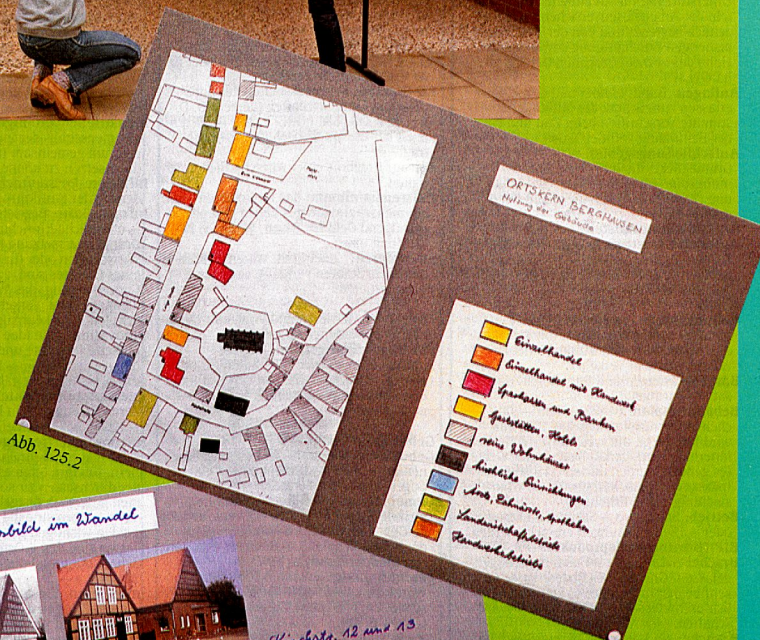 ORTSKERN BERGHAUSEN
Nutzung der Gebäude
Einzelhandel
Einzelhandel mit Handwerk
Sparkassen und Banken
Gaststätten, Hotels
reine Wohnhäuser
kirchliche Einrichtungen
Ärzte, Zahnärzte, Apotheken
Landwirtschaftsbetriebe
Handwerksbetriebe
Abb. 125.2
sbild im Wandel
Kirchstr. 12 und 13